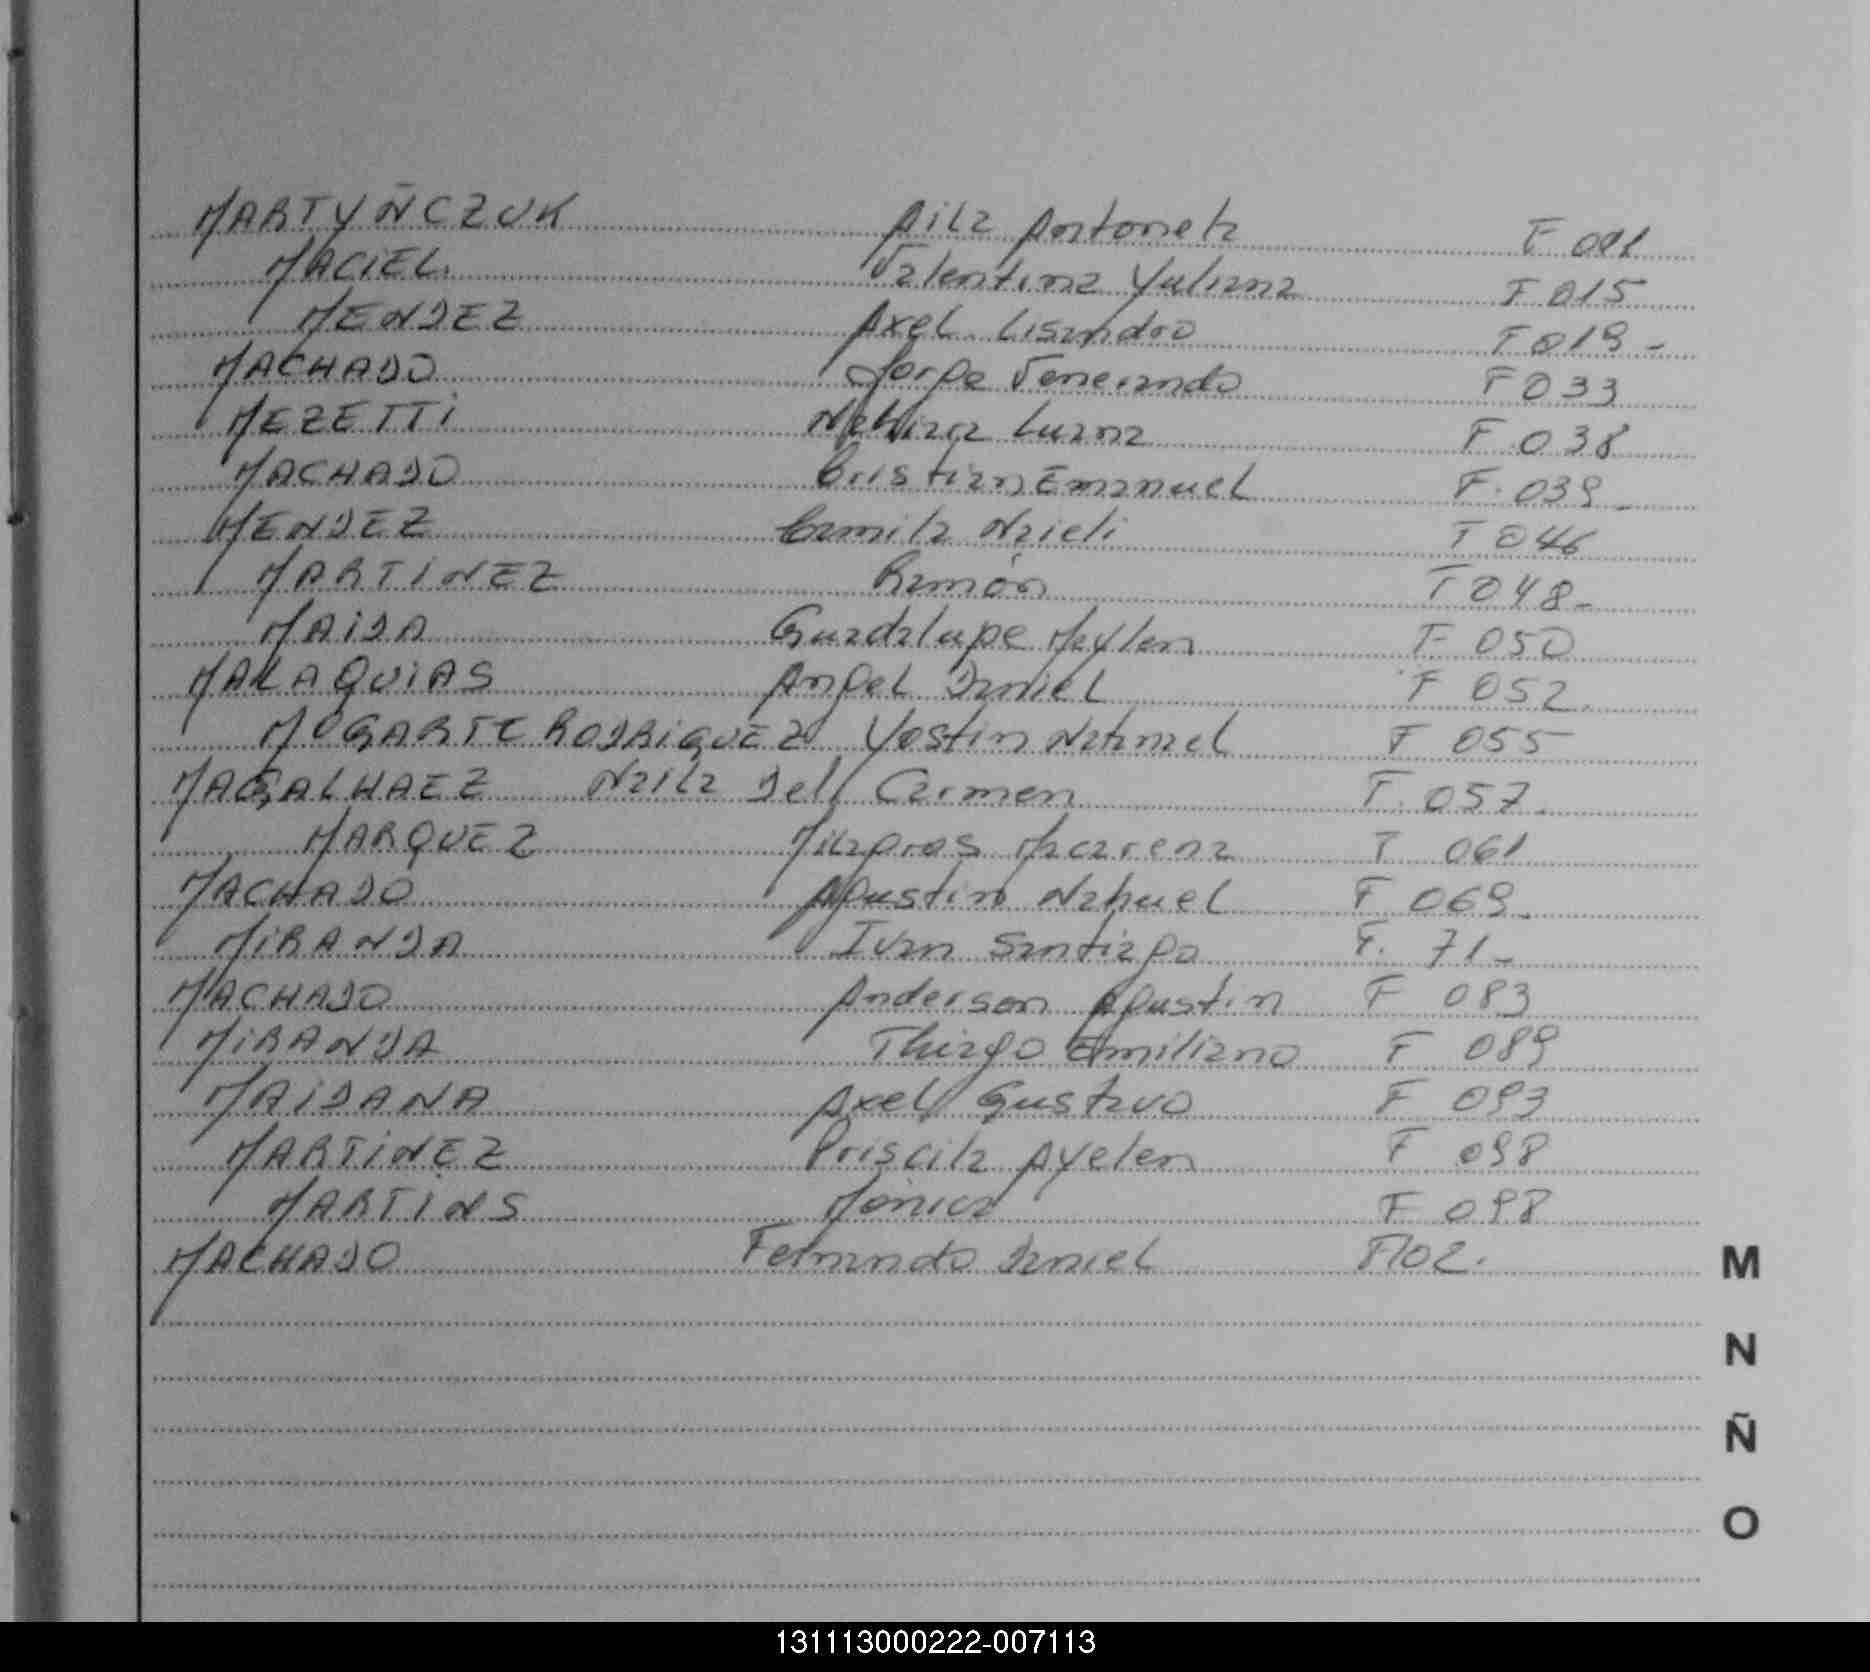 MARTYÑCZUK Aila Antonela F 001
MACIEL. Valentina Yuliana F 015
MENDEZ Axel Lisandro F 019-
MACHADO Jorge Venerando F 033
MEZETTI Nahiara Luana F 038
MACHADO Cristian Emanuel F. 039-
MENDEZ Camila Naieli F 046
MARTINEZ Ramón F 048-
MAIDA Guadalupe Meylen F 050
MALAQUIAS Angel Daniel F 052.
MOGARTE RODRIGUEZ Yostin Natanael F 055
MAGALHAEZ Naila Del Carmen F. 057.
MARQUEZ Milagros Macarena F 061
MACHADO Agustin Nahuel F 069.
MIRANDA Ivan Santiago F. 71-
MACHADO Anderson Agustin F 083
MIRANDA Thiago Emiliano F 089
MAIDANA Axel Gustavo F 093
MARTINEZ Priscila Ayelen F 098
MARTINS Mónica F 098
MACHADO Fernando Daniel F102.
M
N
Ñ
O
131113000222-007113